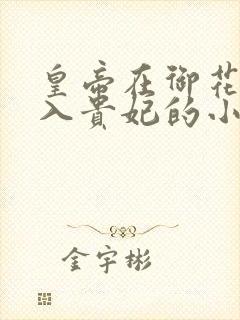 皇帝在御花
入贵妃的小
金宇彬